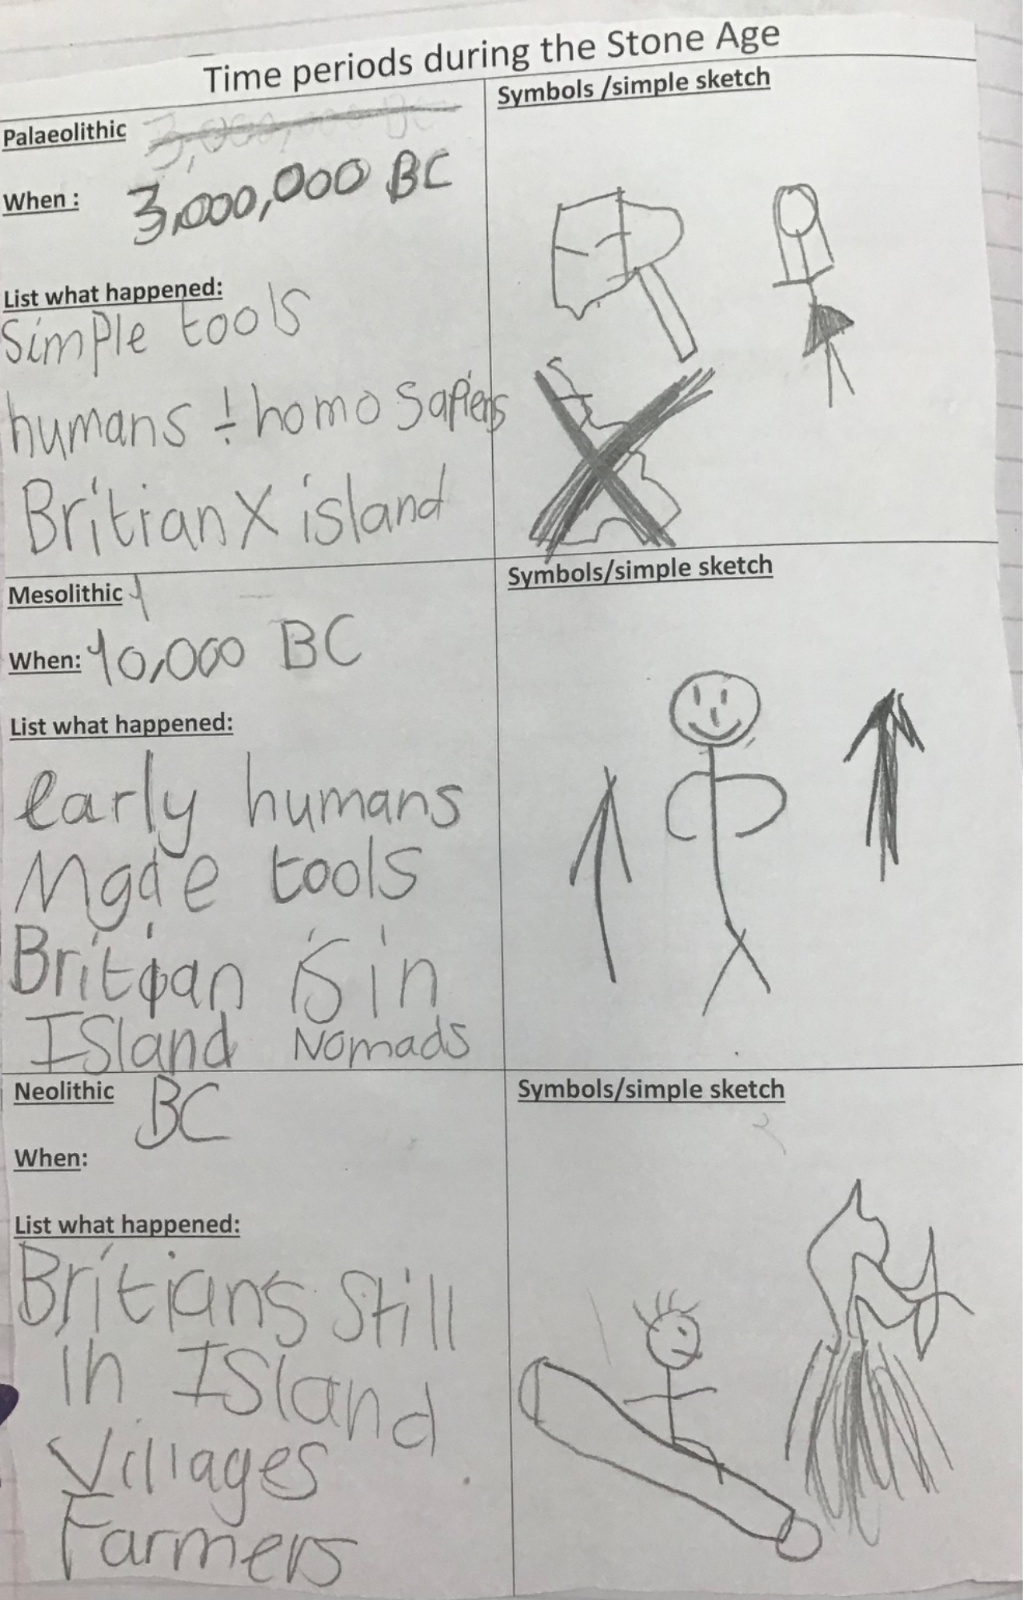 Time periods during the Stone Age
Palaeolithic
When : 3,000,000 BC
List what happened:
Simple tools
humans ÷ homo Sapiens
Britian X island
Symbols /simple sketch
Mesolithic
When: 10,000 BC
List what happened:
early humans
Made tools
Britian is in
ISland Nomads
Symbols/simple sketch
Neolithic BC
When:
List what happened:
Britians Still
in ISland
Villages
Farmers
Symbols/simple sketch